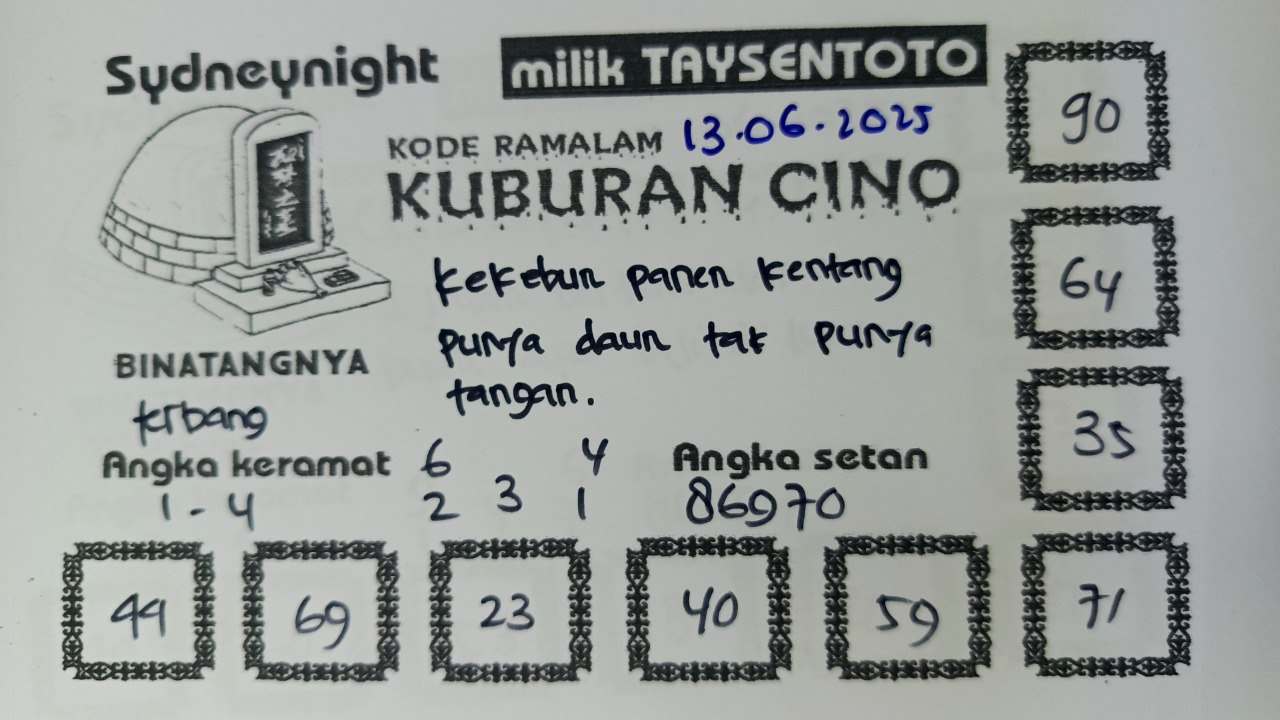 Sydneynight
milik TAYSENTOTO
KODE RAMALAM 13.06.2025
KUBURAN CINO
kekebun panen kentang
punya daun tak punya
tangan.
BINATANGNYA
trbang
Angka keramat
1 - 4
6 4
2 3 1
Angka setan
86970
90
64
35
44
69
23
40
59
71